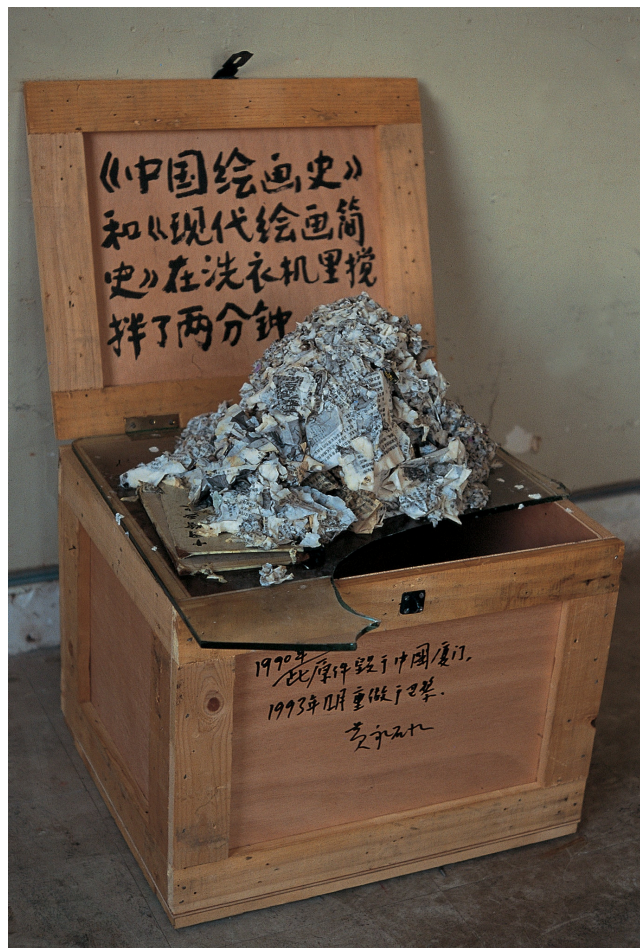 《中国绘画史》
和《现代绘画简
史》在洗衣机里搅
拌了两分钟
1990年
此原件毁于中國厦门。
1993年12月重做于巴黎.
黄永砅